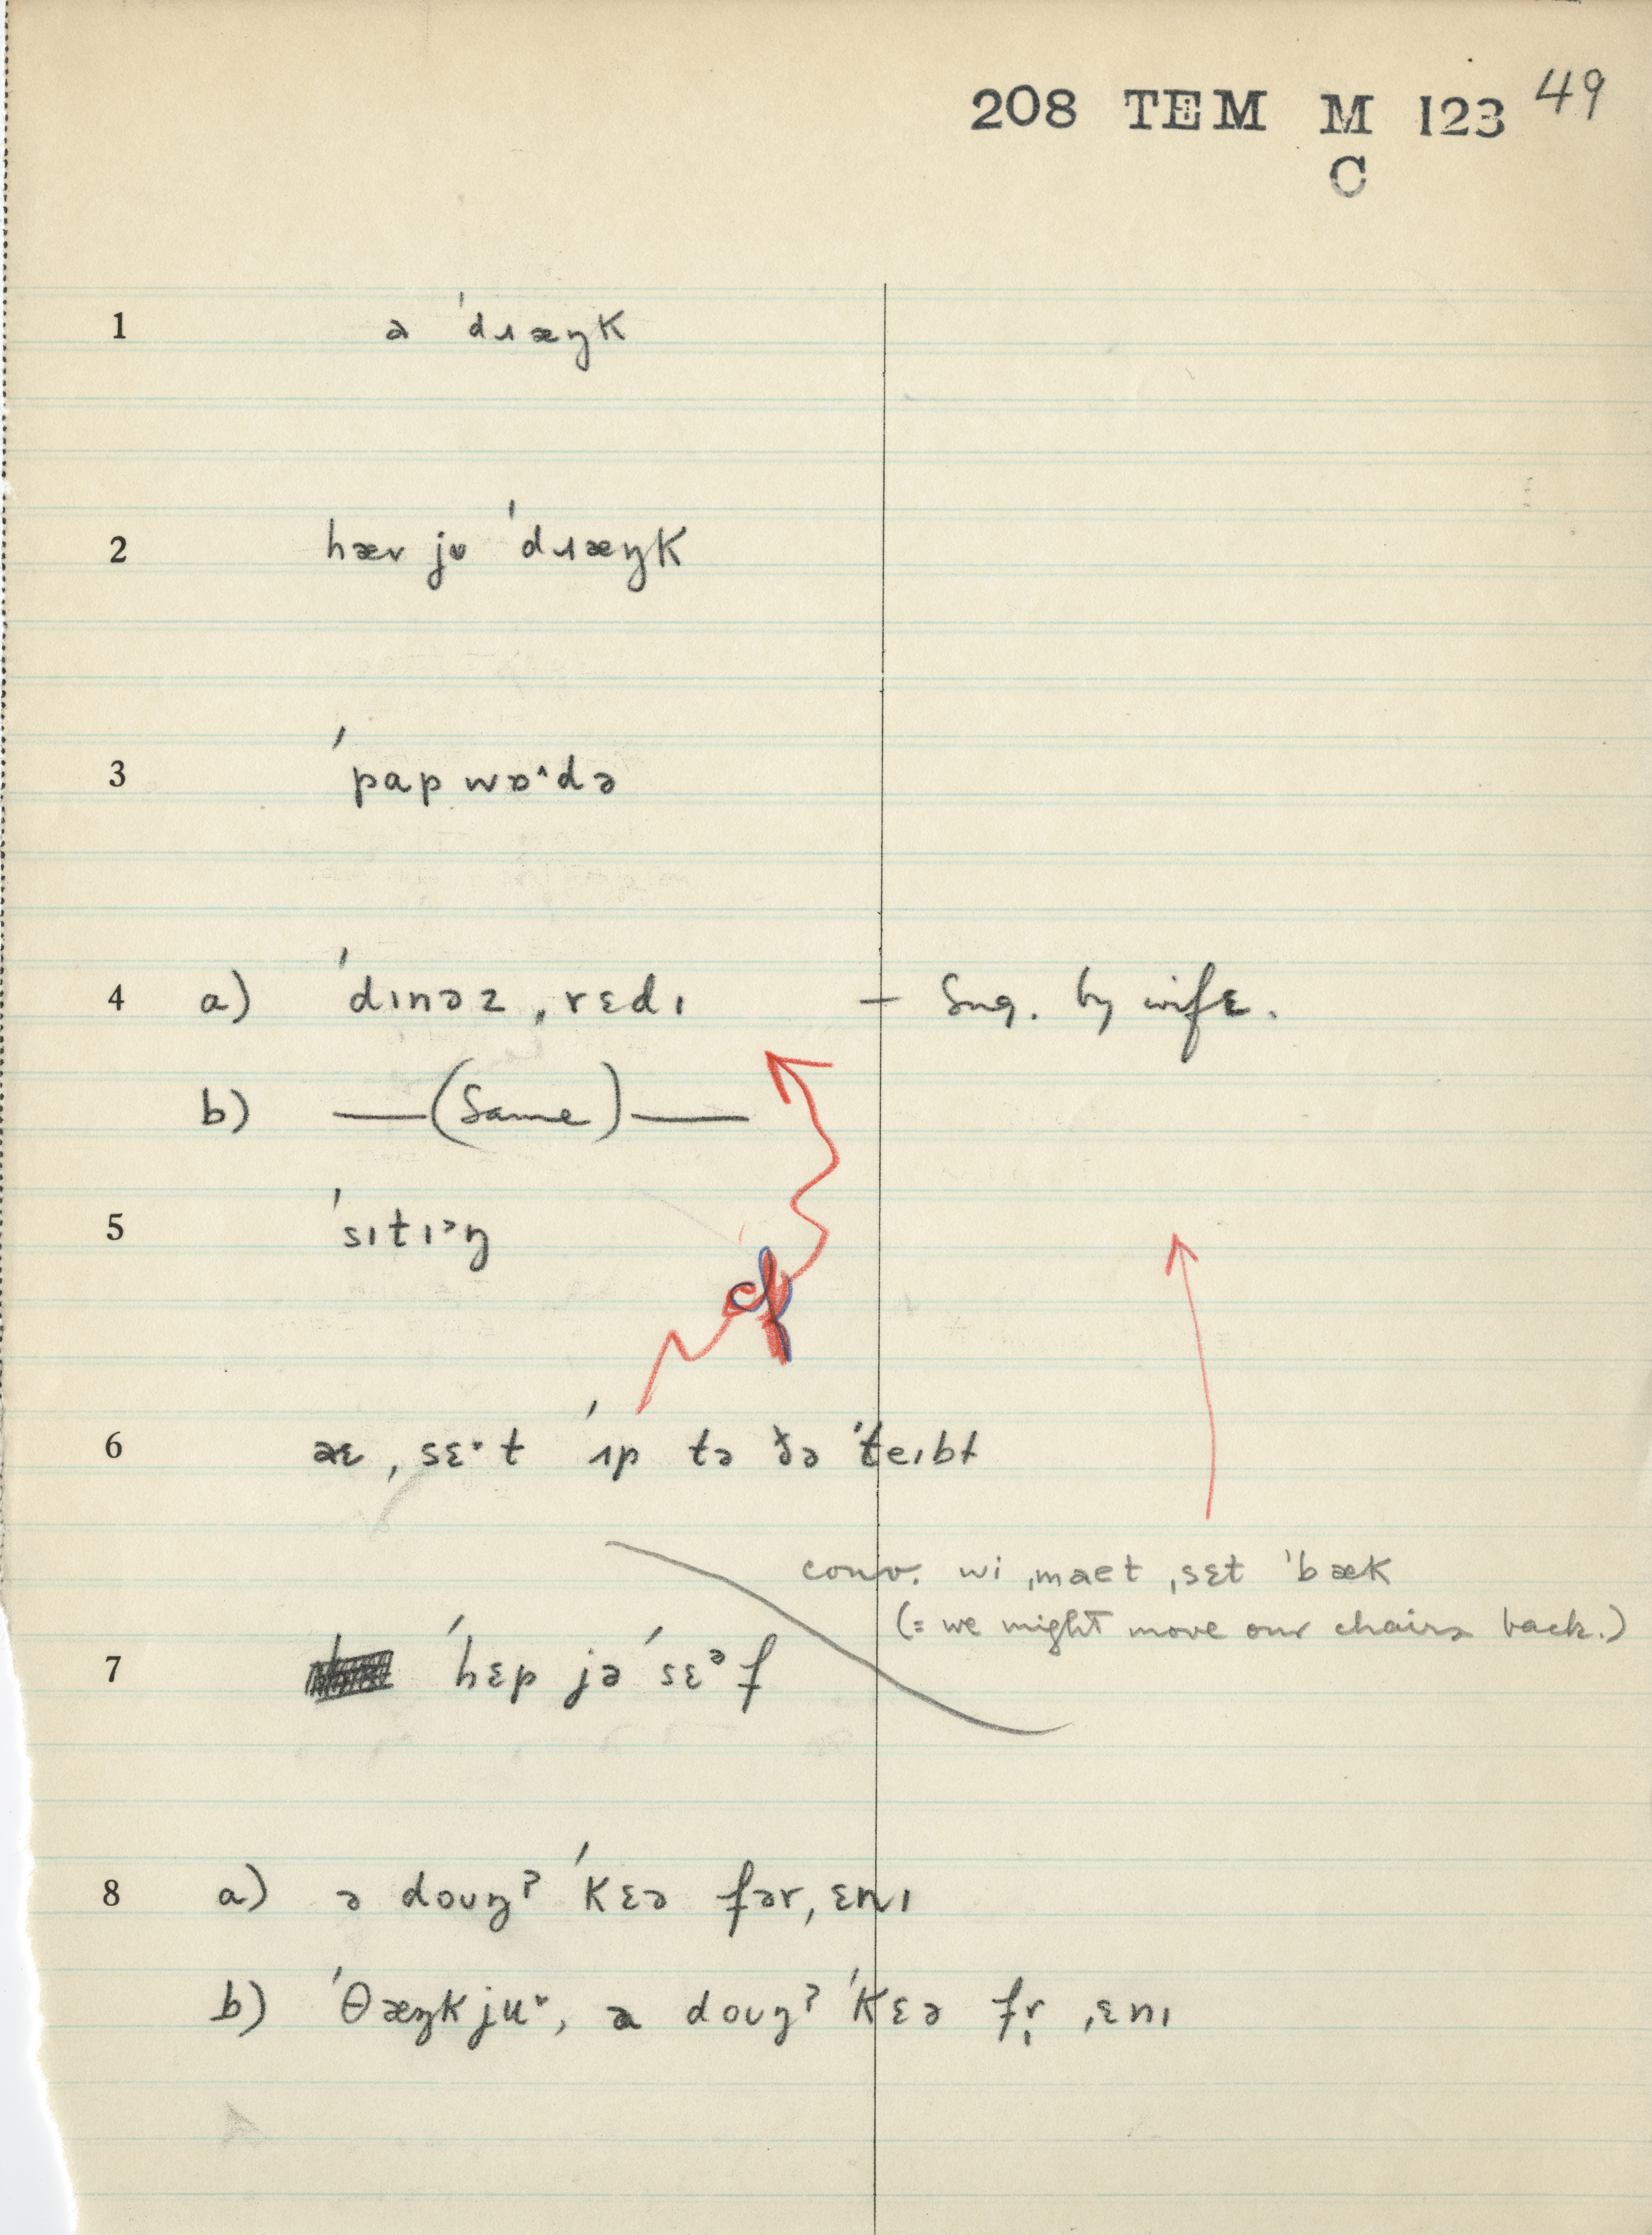 208 TEM M 123 49
C
1 a ˈdɹæŋk
2 hæv jʊ ˈdɹæŋk
3 ˈpap wɒ^də
4 a) ˈdɪnəz ˌrɛdɪ — Sug. by wife.
b) —(Same)—
5 ˈsɪtɪᵊŋ
cf
6 æɛ ˌsɛ·t ˈʌp tə ðə ˈteɪbɫ
conv. wi ˌmaet ˌsɛt ˈbæk
(= we might move our chairs back.)
7 ˈhɛp jəˈsɛᵊf
8 a) ə doʊŋʔ ˈkɛə fər ˌɛnɪ
b) ˈθæŋkjuᵛ, a doʊŋʔ ˈkɛə fr̩ ˌɛnɪ